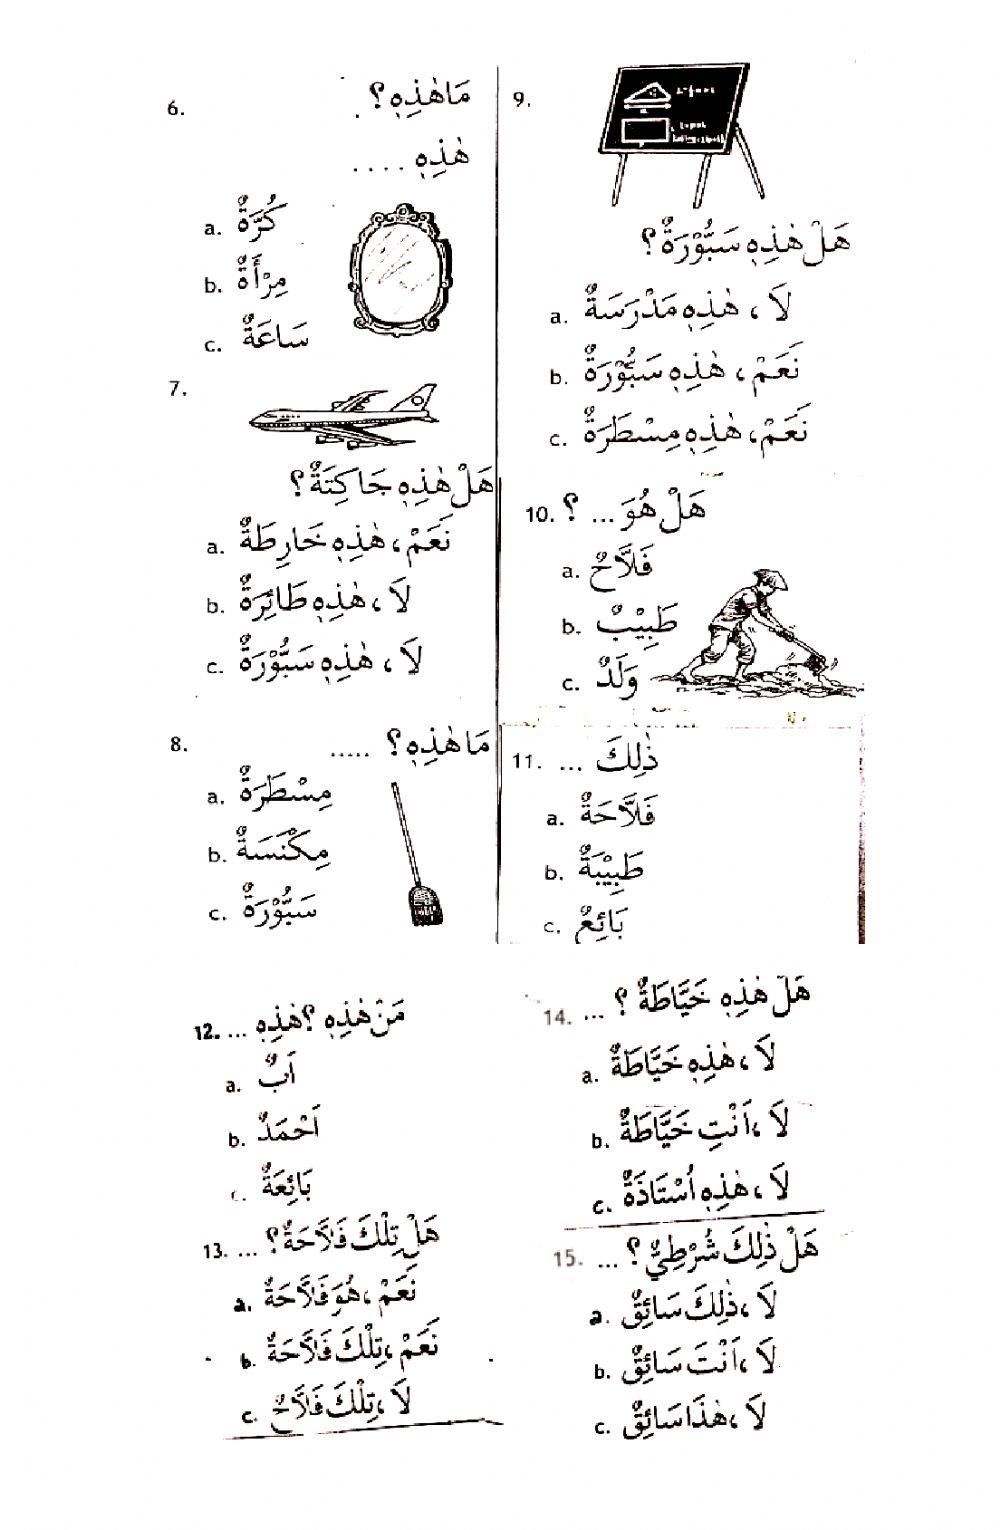 6. مَا هٰذِهِ ؟
هٰذِهِ ....
a. كُرَّةٌ
b. مِرْأَةٌ
c. سَاعَةٌ
7.
هَلْ هٰذِهِ جَاكِتَةٌ ؟
a. نَعَمْ، هٰذِهِ خَارِطَةٌ
b. لَا، هٰذِهِ طَائِرَةٌ
c. لَا، هٰذِهِ سَبُّوْرَةٌ
8. مَا هٰذِهِ ؟ .....
a. مِسْطَرَةٌ
b. مِكْنَسَةٌ
c. سَبُّوْرَةٌ
9.
هَلْ هٰذِهِ سَبُّوْرَةٌ ؟
a. لَا، هٰذِهِ مَدْرَسَةٌ
b. نَعَمْ، هٰذِهِ سَبُّوْرَةٌ
c. نَعَمْ، هٰذِهِ مِسْطَرَةٌ
10. هَلْ هُوَ ... ؟
a. فَلَّاحٌ
b. طَبِيْبٌ
c. وَلَدٌ
11. ذٰلِكَ ...
a. فَلَّاحَةٌ
b. طَبِيْبَةٌ
c. بَائِعٌ
12. مَنْ هٰذِهِ ؟ هٰذِهِ ...
a. اَبٌ
b. اَحْمَدٌ
c. بَائِعَةٌ
13. هَلْ تِلْكَ فَلَّاحَةٌ ؟ ...
a. نَعَمْ، هُوَ فَلَّاحَةٌ
b. نَعَمْ، تِلْكَ فَلَّاحَةٌ
c. لَا، تِلْكَ فَلَّاحٌ
14. هَلْ هٰذِهِ خَيَّاطَةٌ ؟ ...
a. لَا، هٰذِهِ خَيَّاطَةٌ
b. لَا، اَنْتِ خَيَّاطَةٌ
c. لَا، هٰذِهِ اُسْتَاذَةٌ
15. هَلْ ذٰلِكَ شُرْطِيٌّ ؟ ...
a. لَا، ذٰلِكَ سَائِقٌ
b. لَا، اَنْتَ سَائِقٌ
c. لَا، هٰذَا سَائِقٌ